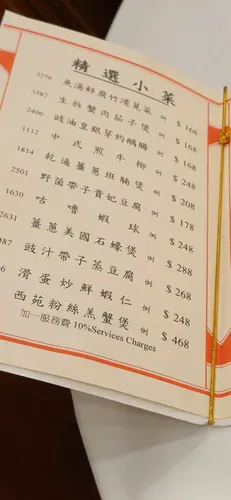 精選小菜
3276 魚湯鮮腐竹浸莧菜 例 $ 168
3382 生拆蟹肉茄子煲 例 $ 168
2406 豉油皇銀芽灼鵝腸 例 $ 168
1112 中式煎牛柳 例 $ 168
1814 乾逼薑蔥班腩煲 例 $ 248
2501 野菌帶子貴妃豆腐 例 $ 208
1630 咕嚕蝦球 例 $ 178
2631 薑蔥美國石蠔煲 例 $ 248
387 豉汁帶子蒸豆腐 例 $ 288
6 滑蛋炒鮮蝦仁 例 $ 268
西苑粉絲羔蟹煲 例 $ 248
加一服務費 10%Services Charges $ 468